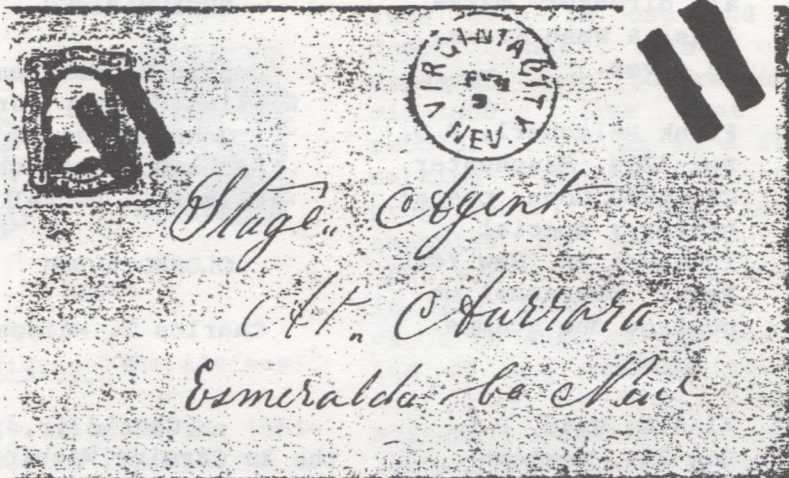 VIRGINIA CITY
NEV.
Stage,, Agent
At,, Aurrora
Esmeralda Co Nev